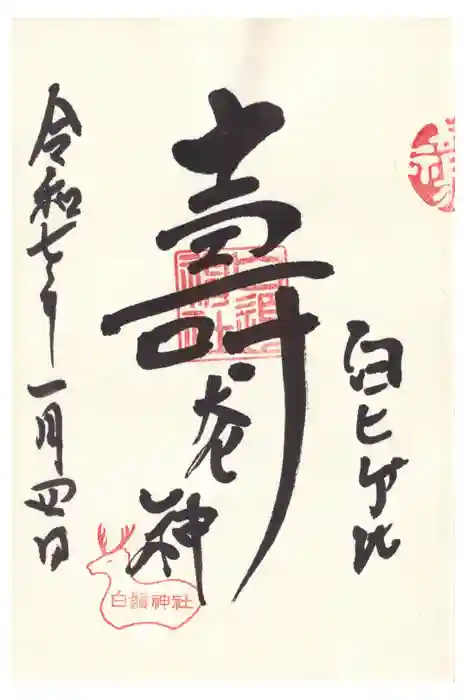 白ヒゲ
壽老神
白鬚神社
令和七年一月四日
白鬚神社